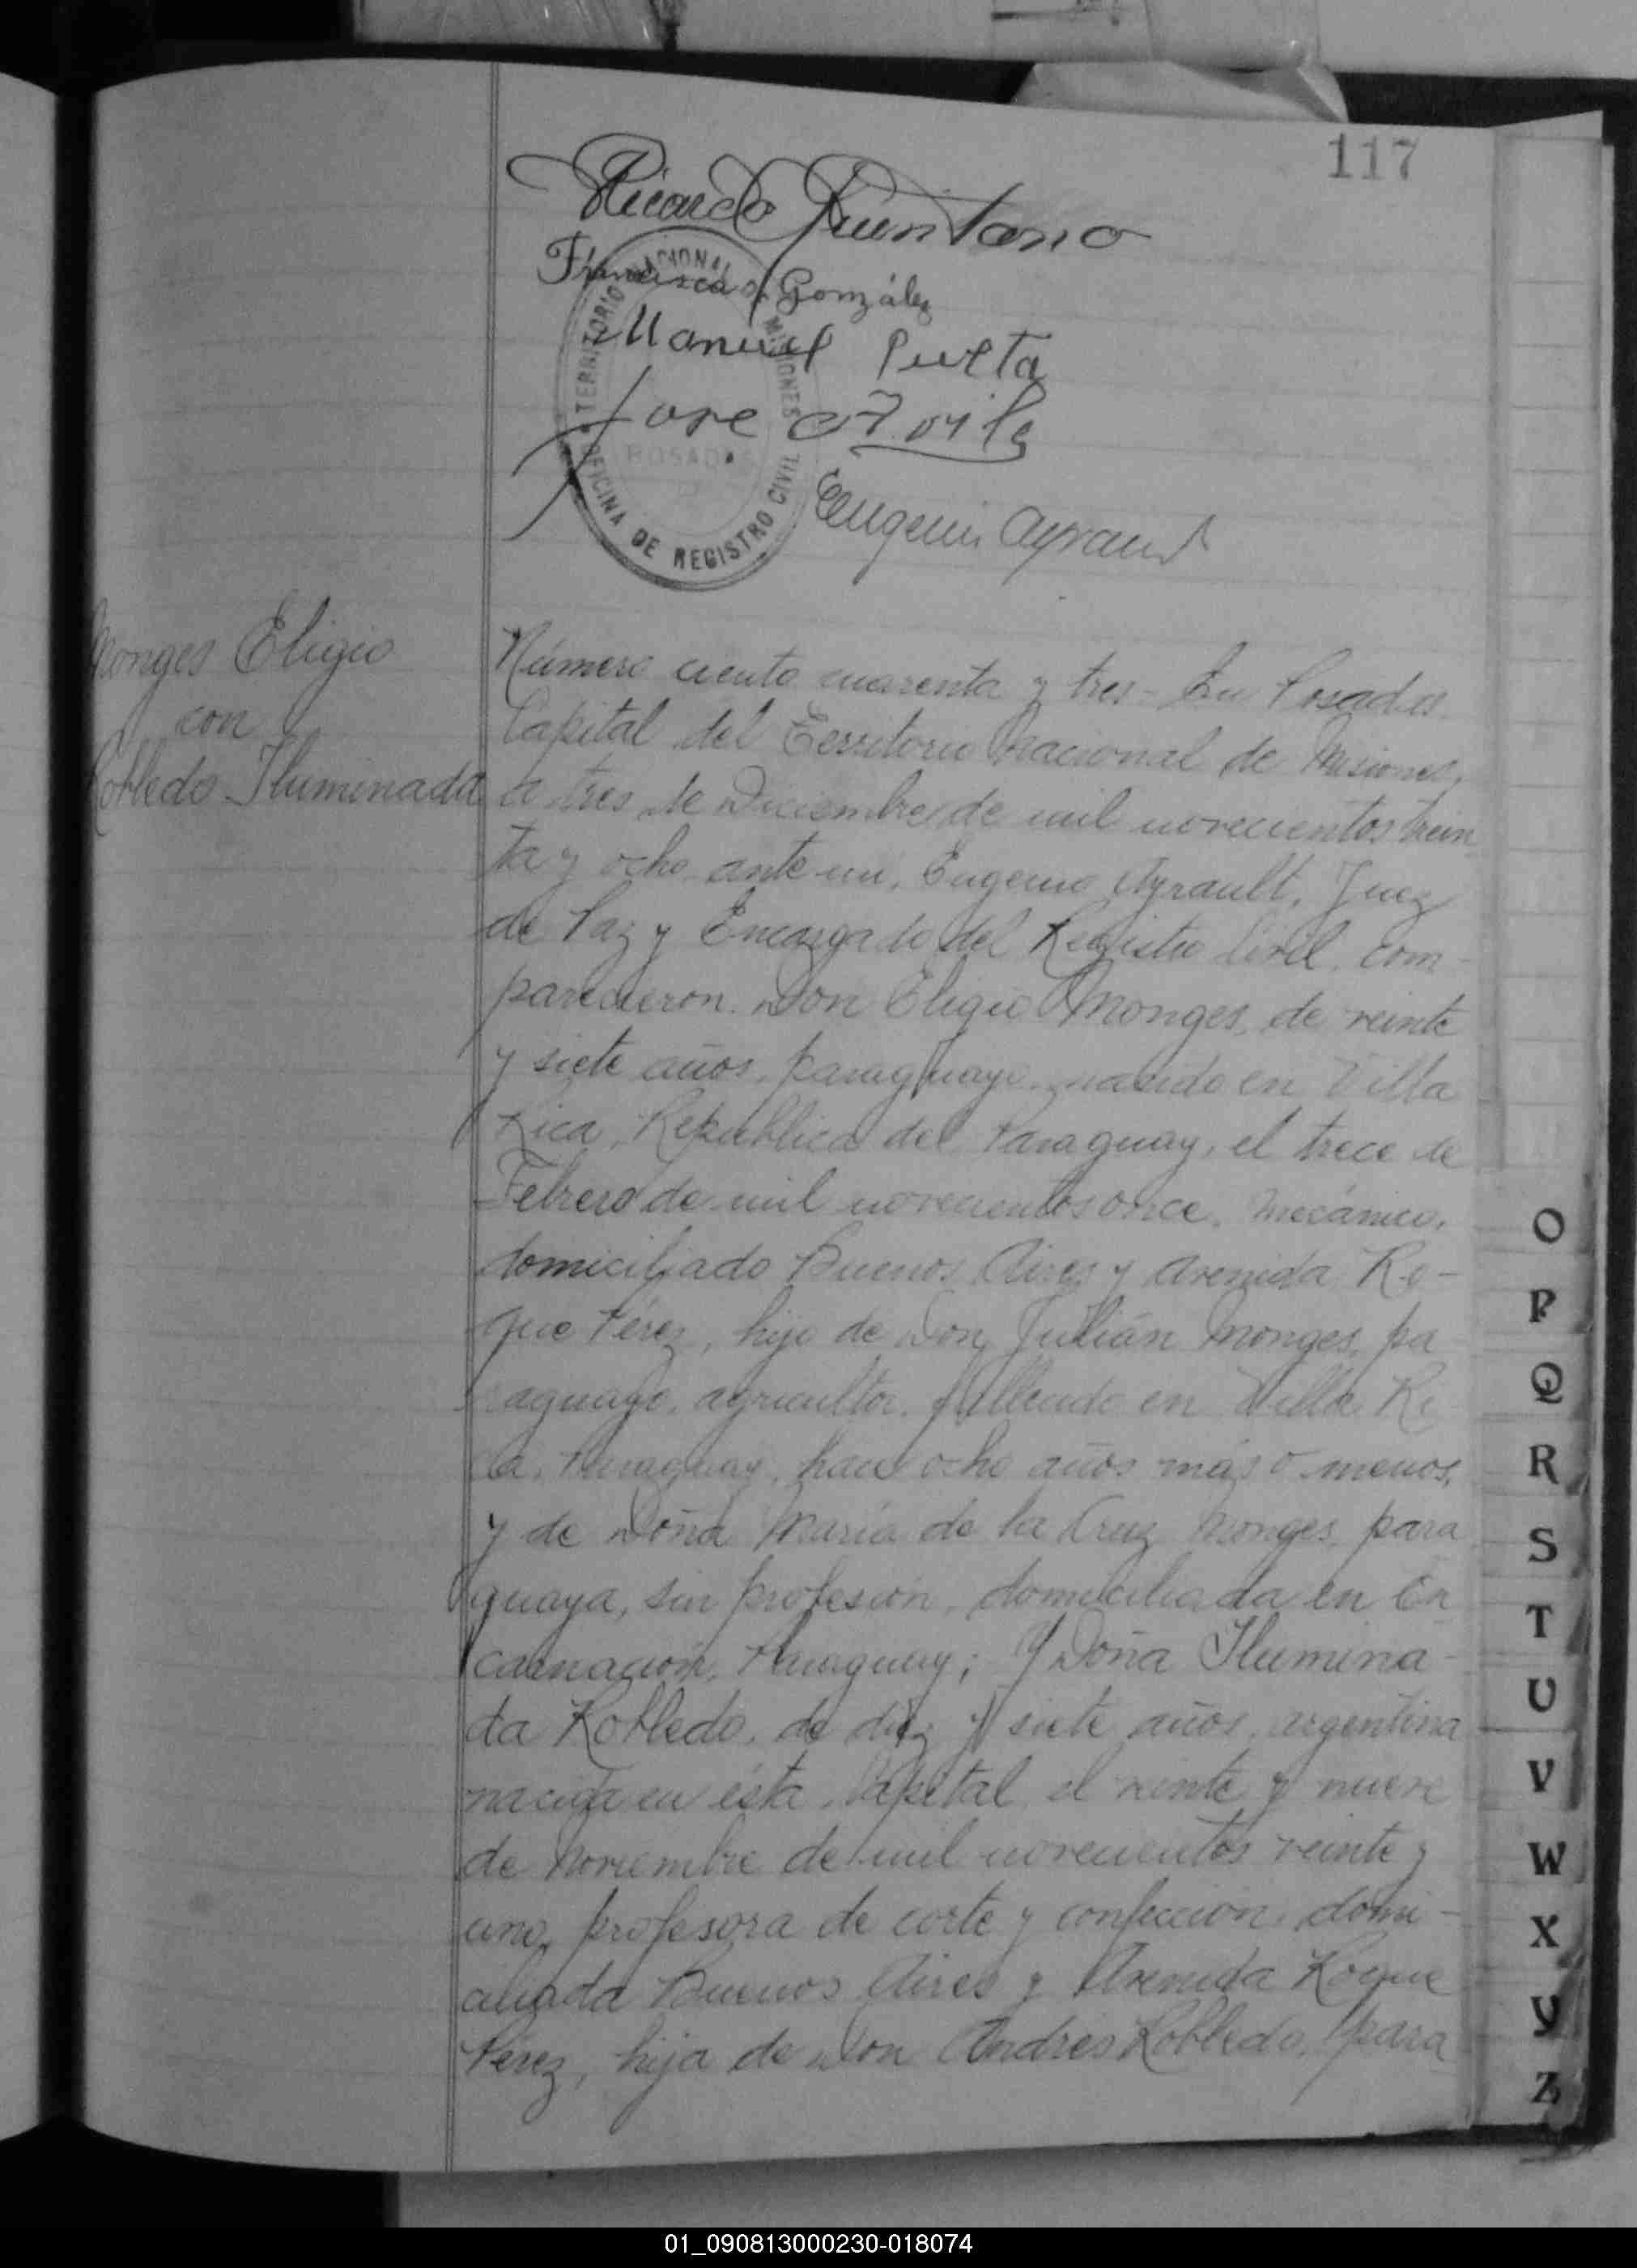 117
Ricardo Quintana
Francisca S. González
Manuel Puelta
Jose Avila
TERRITORIO NACIONAL MISIONES
POSADAS
OFICINA DE REGISTRO CIVIL
Eugenio Ayrault
Monges Eligio
con
Robledo Iluminada
Número ciento cuarenta y tres - En Posadas
Capital del Territorio Nacional de Misiones,
a tres de Diciembre de mil novecientos trein
ta y ocho, ante mi, Eugenio Ayrault, Juez
de Paz y Encargado del Registro Civil, com-
parecieron: Don Eligio Monges, de veinte
y siete años, paraguayo, nacido en Villa
Rica, República del Paraguay, el trece de
Febrero de mil novecientos once, mecánico,
domiciliado Buenos Aires y Avenida Ro-
que Pérez, hijo de Don Julián Monges, pa
raguayo, agricultor, fallecido en Villa Ri
ca, Paraguay, hace ocho años más o menos,
y de Doña María de la Cruz Monges, para
guaya, sin profesión, domiciliada en En
carnación, Paraguay; Y Doña Ilumina-
da Robledo, de diez y siete años, argentina
nacida en ésta Capital el veinte y nueve
de Noviembre de mil novecientos veinte y
uno, profesora de corte y confección, domi-
ciliada Buenos Aires y Avenida Roque
Pérez, hija de Don Andrés Robledo, para
O
P
Q
R
S
T
U
V
W
X
Y
Z
01_090813000230-018074